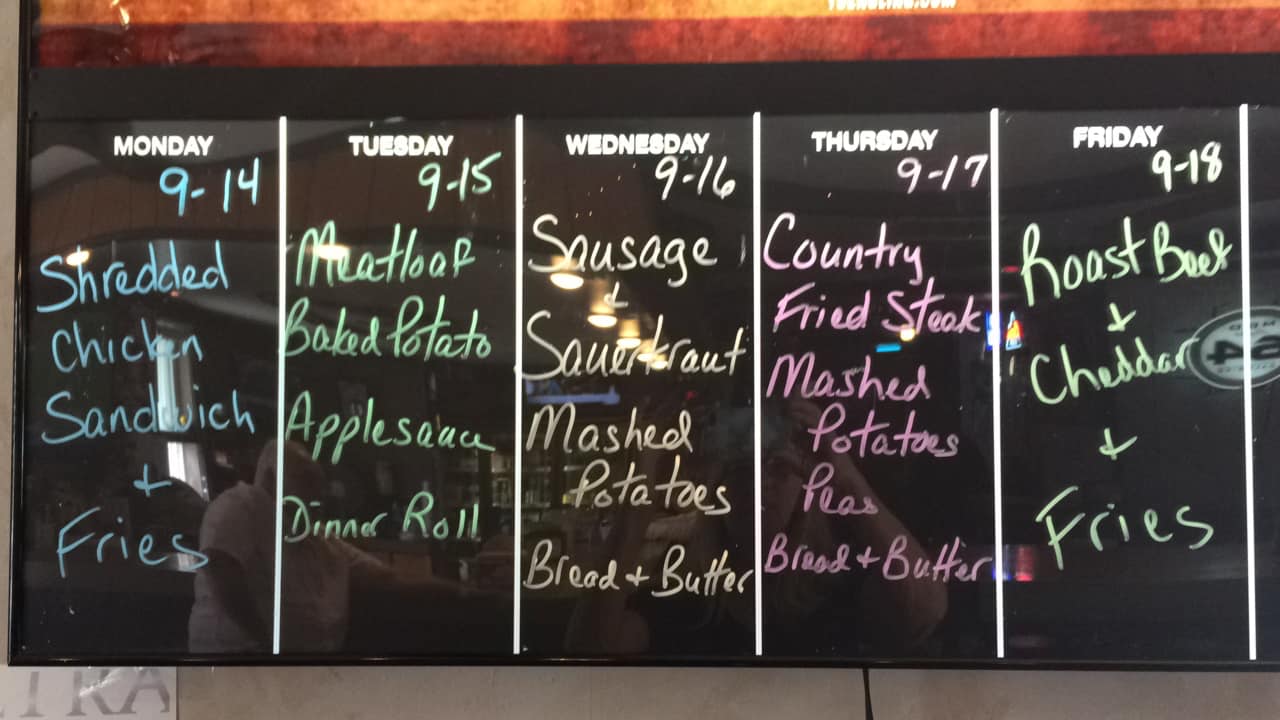 MONDAY
9-14
Shredded
Chicken
Sandwich
+
Fries
TUESDAY
9-15
Meatloaf
Baked Potato
Applesauce
Dinner Roll
WEDNESDAY
9-16
Sausage
+
Sauerkraut
Mashed
Potatoes
Bread + Butter
THURSDAY
9-17
Country
Fried Steak
Mashed
Potatoes
Peas
Bread + Butter
FRIDAY
9-18
Roast Beef
+
Cheddar
+
Fries